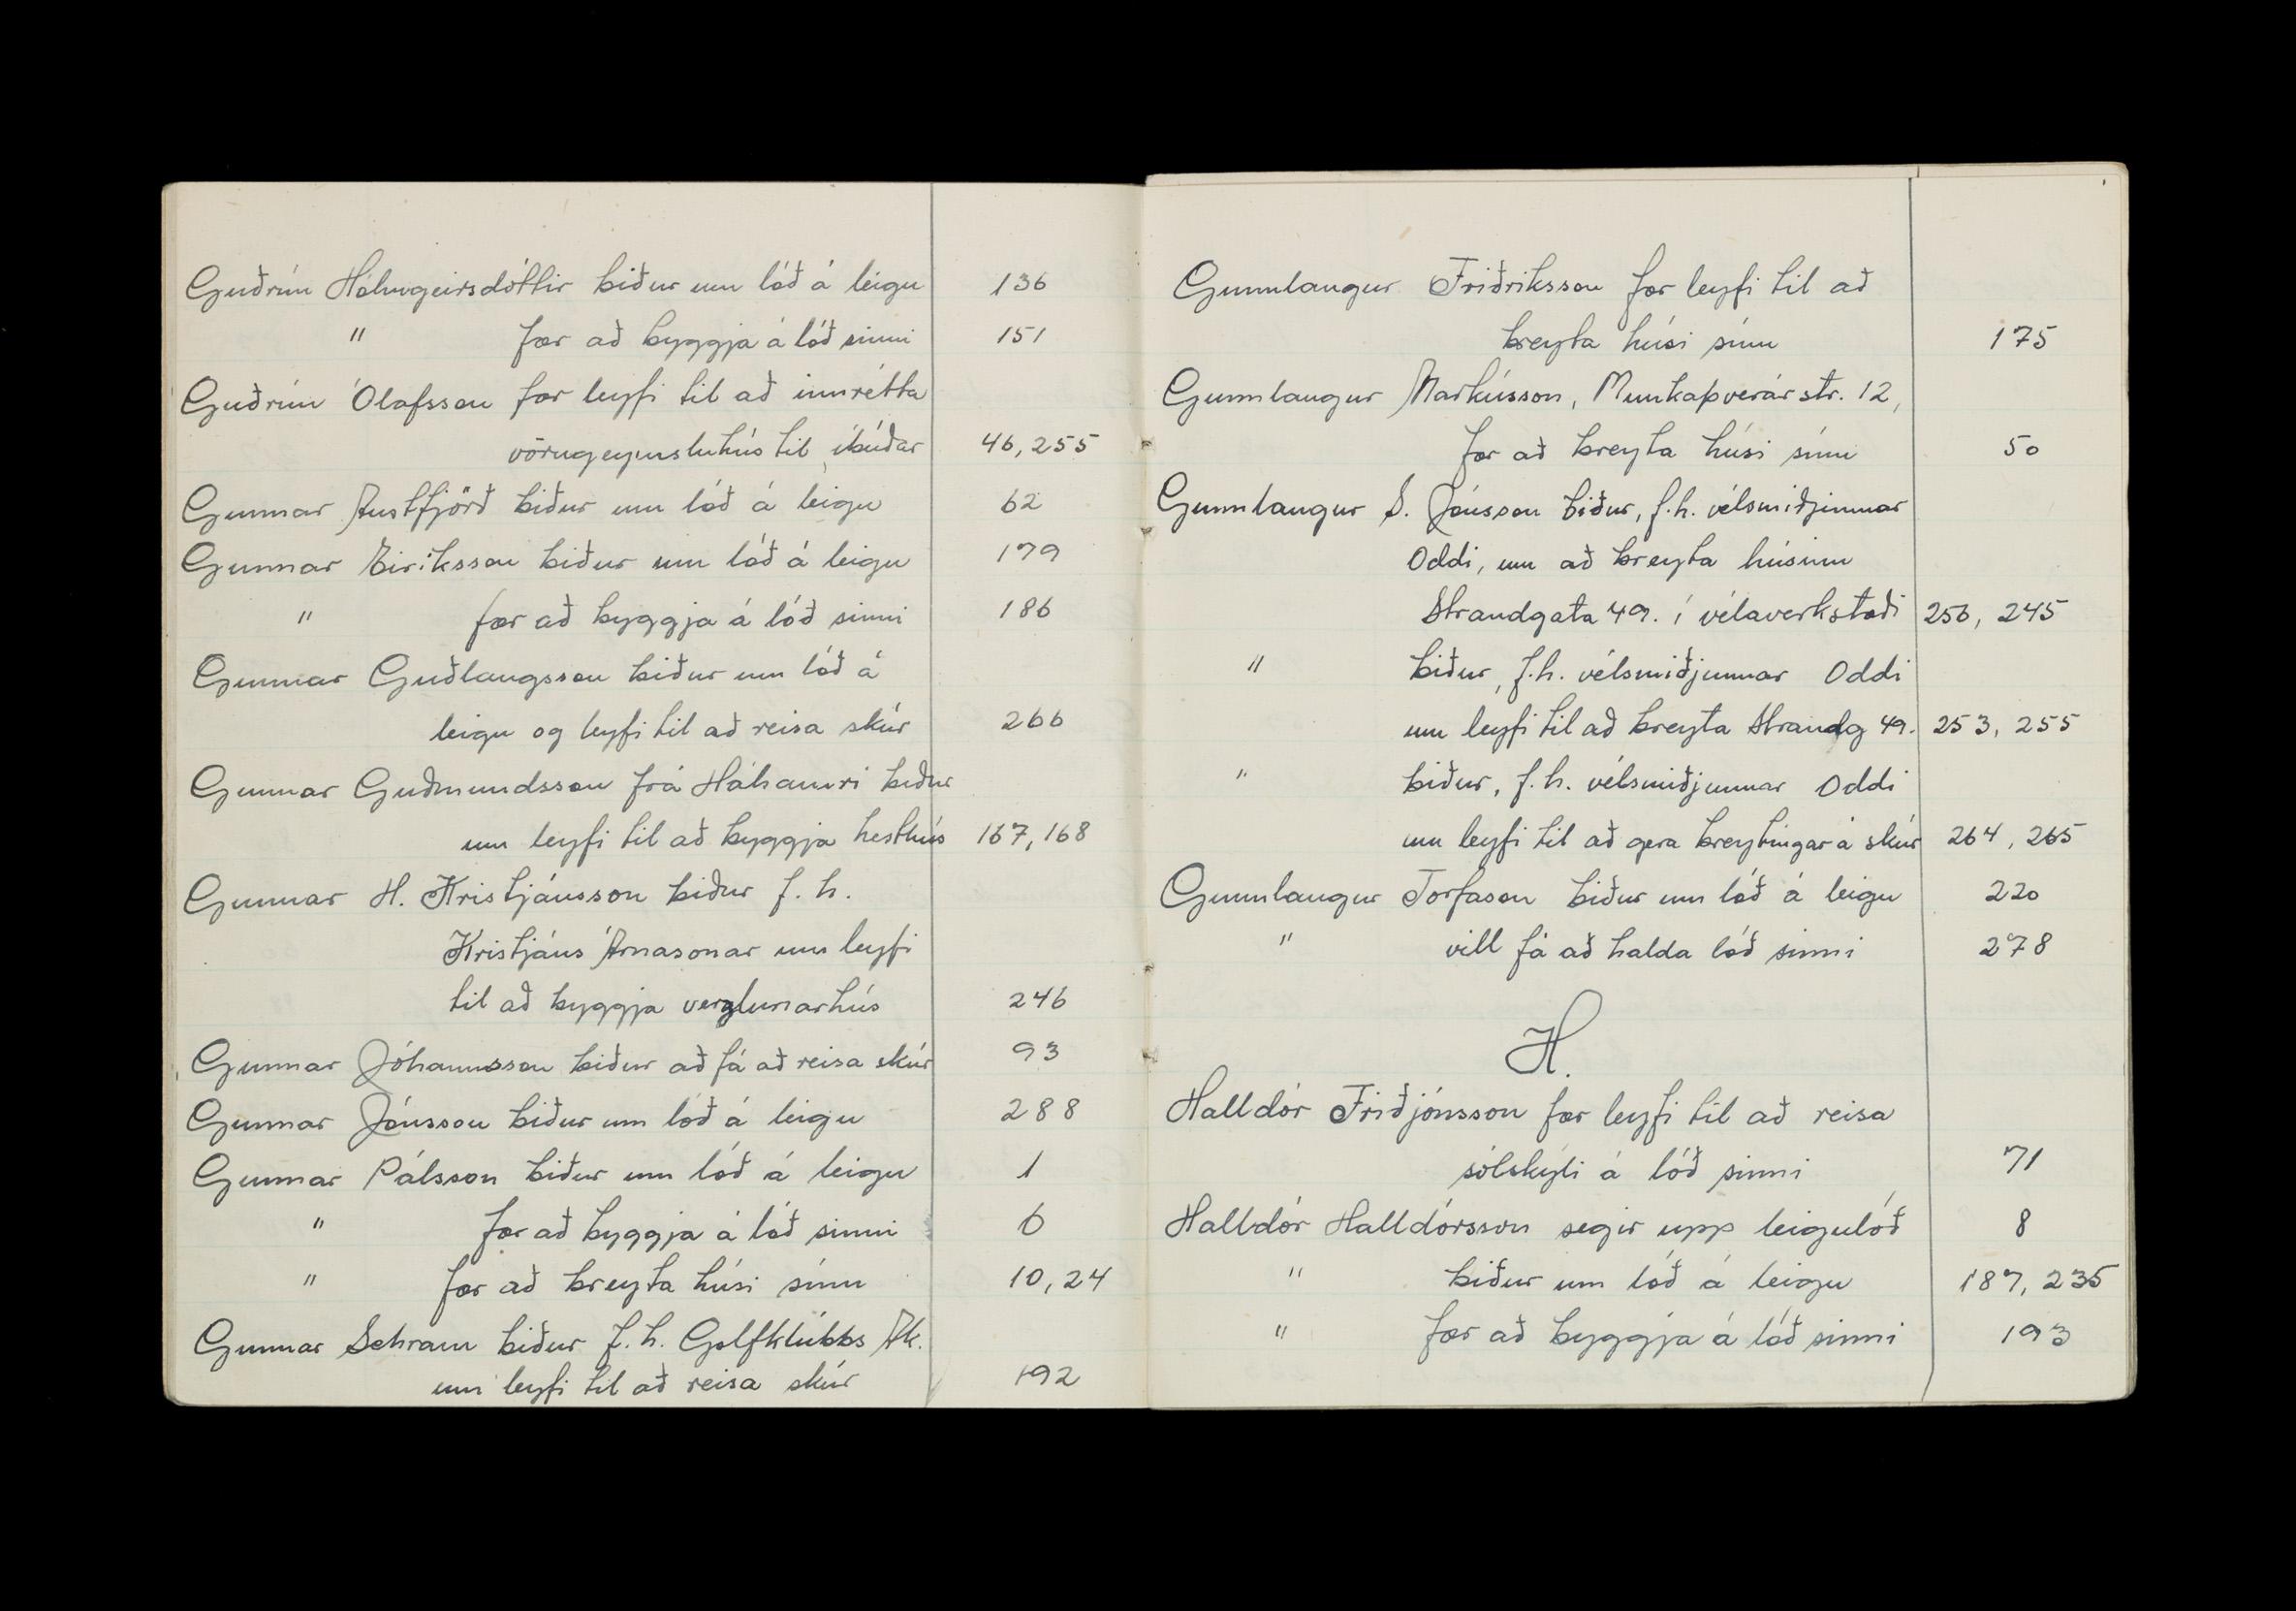 Guðrún Hólmgeirsdóttir biður um lóð á leigu 136
" fær að byggja á lóð sinni 151
Guðrún Ólafsson fær leyfi til að innrétta
vörugeymsluhús til íbúðar 46, 255
Gunnar Austfjörð biður um lóð á leigu 62
Gunnar Eiríksson biður um lóð á leigu 179
" fær að byggja á lóð sinni 186
Gunnar Guðlaugsson biður um lóð á
leigu og leyfi til að reisa skúr 266
Gunnar Guðmundsson frá Háhamri biður
um leyfi til að byggja hesthús 167, 168
Gunnar H. Kristjánsson biður f. h.
Kristjáns Árnasonar um leyfi
til að byggja verzlunarhús 246
Gunnar Jóhannsson biður að fá að reisa skúr 93
Gunnar Jónsson biður um lóð á leigu 288
Gunnar Pálsson biður um lóð á leigu 1
" fær að byggja á lóð sinni 6
" fær að breyta húsi sínu 10, 24
Gunnar Schram biður f. h. Golfklúbbs Ak.
um leyfi til að reisa skúr 192
Gunnlaugur Friðriksson fær leyfi til að
breyta húsi sínu 175
Gunnlaugur Markússon, Munkaþverárstr. 12,
fær að breyta húsi sínu 50
Gunnlaugur S. Jónsson biður, f.h. vélsmiðjunnar
Oddi, um að breyta húsinu
Strandgata 49. í vélaverkstæði 256, 245
" biður, f.h. vélsmiðjunnar Oddi
um leyfi til að breyta Strandg 49. 253, 255
" biður, f.h. vélsmiðjunnar Oddi
um leyfi til að gera breytingar á skúr 264, 265
Gunnlaugur Torfason biður um lóð á leigu 220
" vill fá að halda lóð sinni 278
H.
Halldór Friðjónsson fær leyfi til að reisa
sólskýli á lóð sinni 71
Halldór Halldórsson segir upp leigulóð 8
" biður um lóð á leigu 187, 235
" fær að byggja á lóð sinni 193